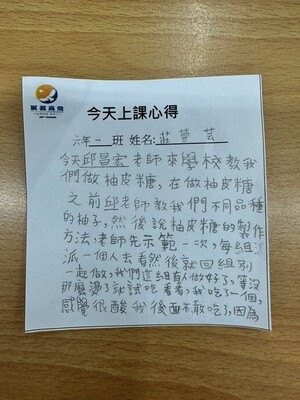 展義高飛
今天上課心得
六年一班 姓名:莊萱芸
今天邱昌宏老師來學校教我
們做柚皮糖,在做柚皮糖
之前邱老師教我們不同品種
的柚子,然後說柚皮糖的製作
方法,老師先示範一次,每組
派一個人去看然後就回組別
一起做,我們這組有人做好了,等沒
那麼燙了就試吃看看,我吃了一個,
感覺很酸我後面不敢吃了,因為